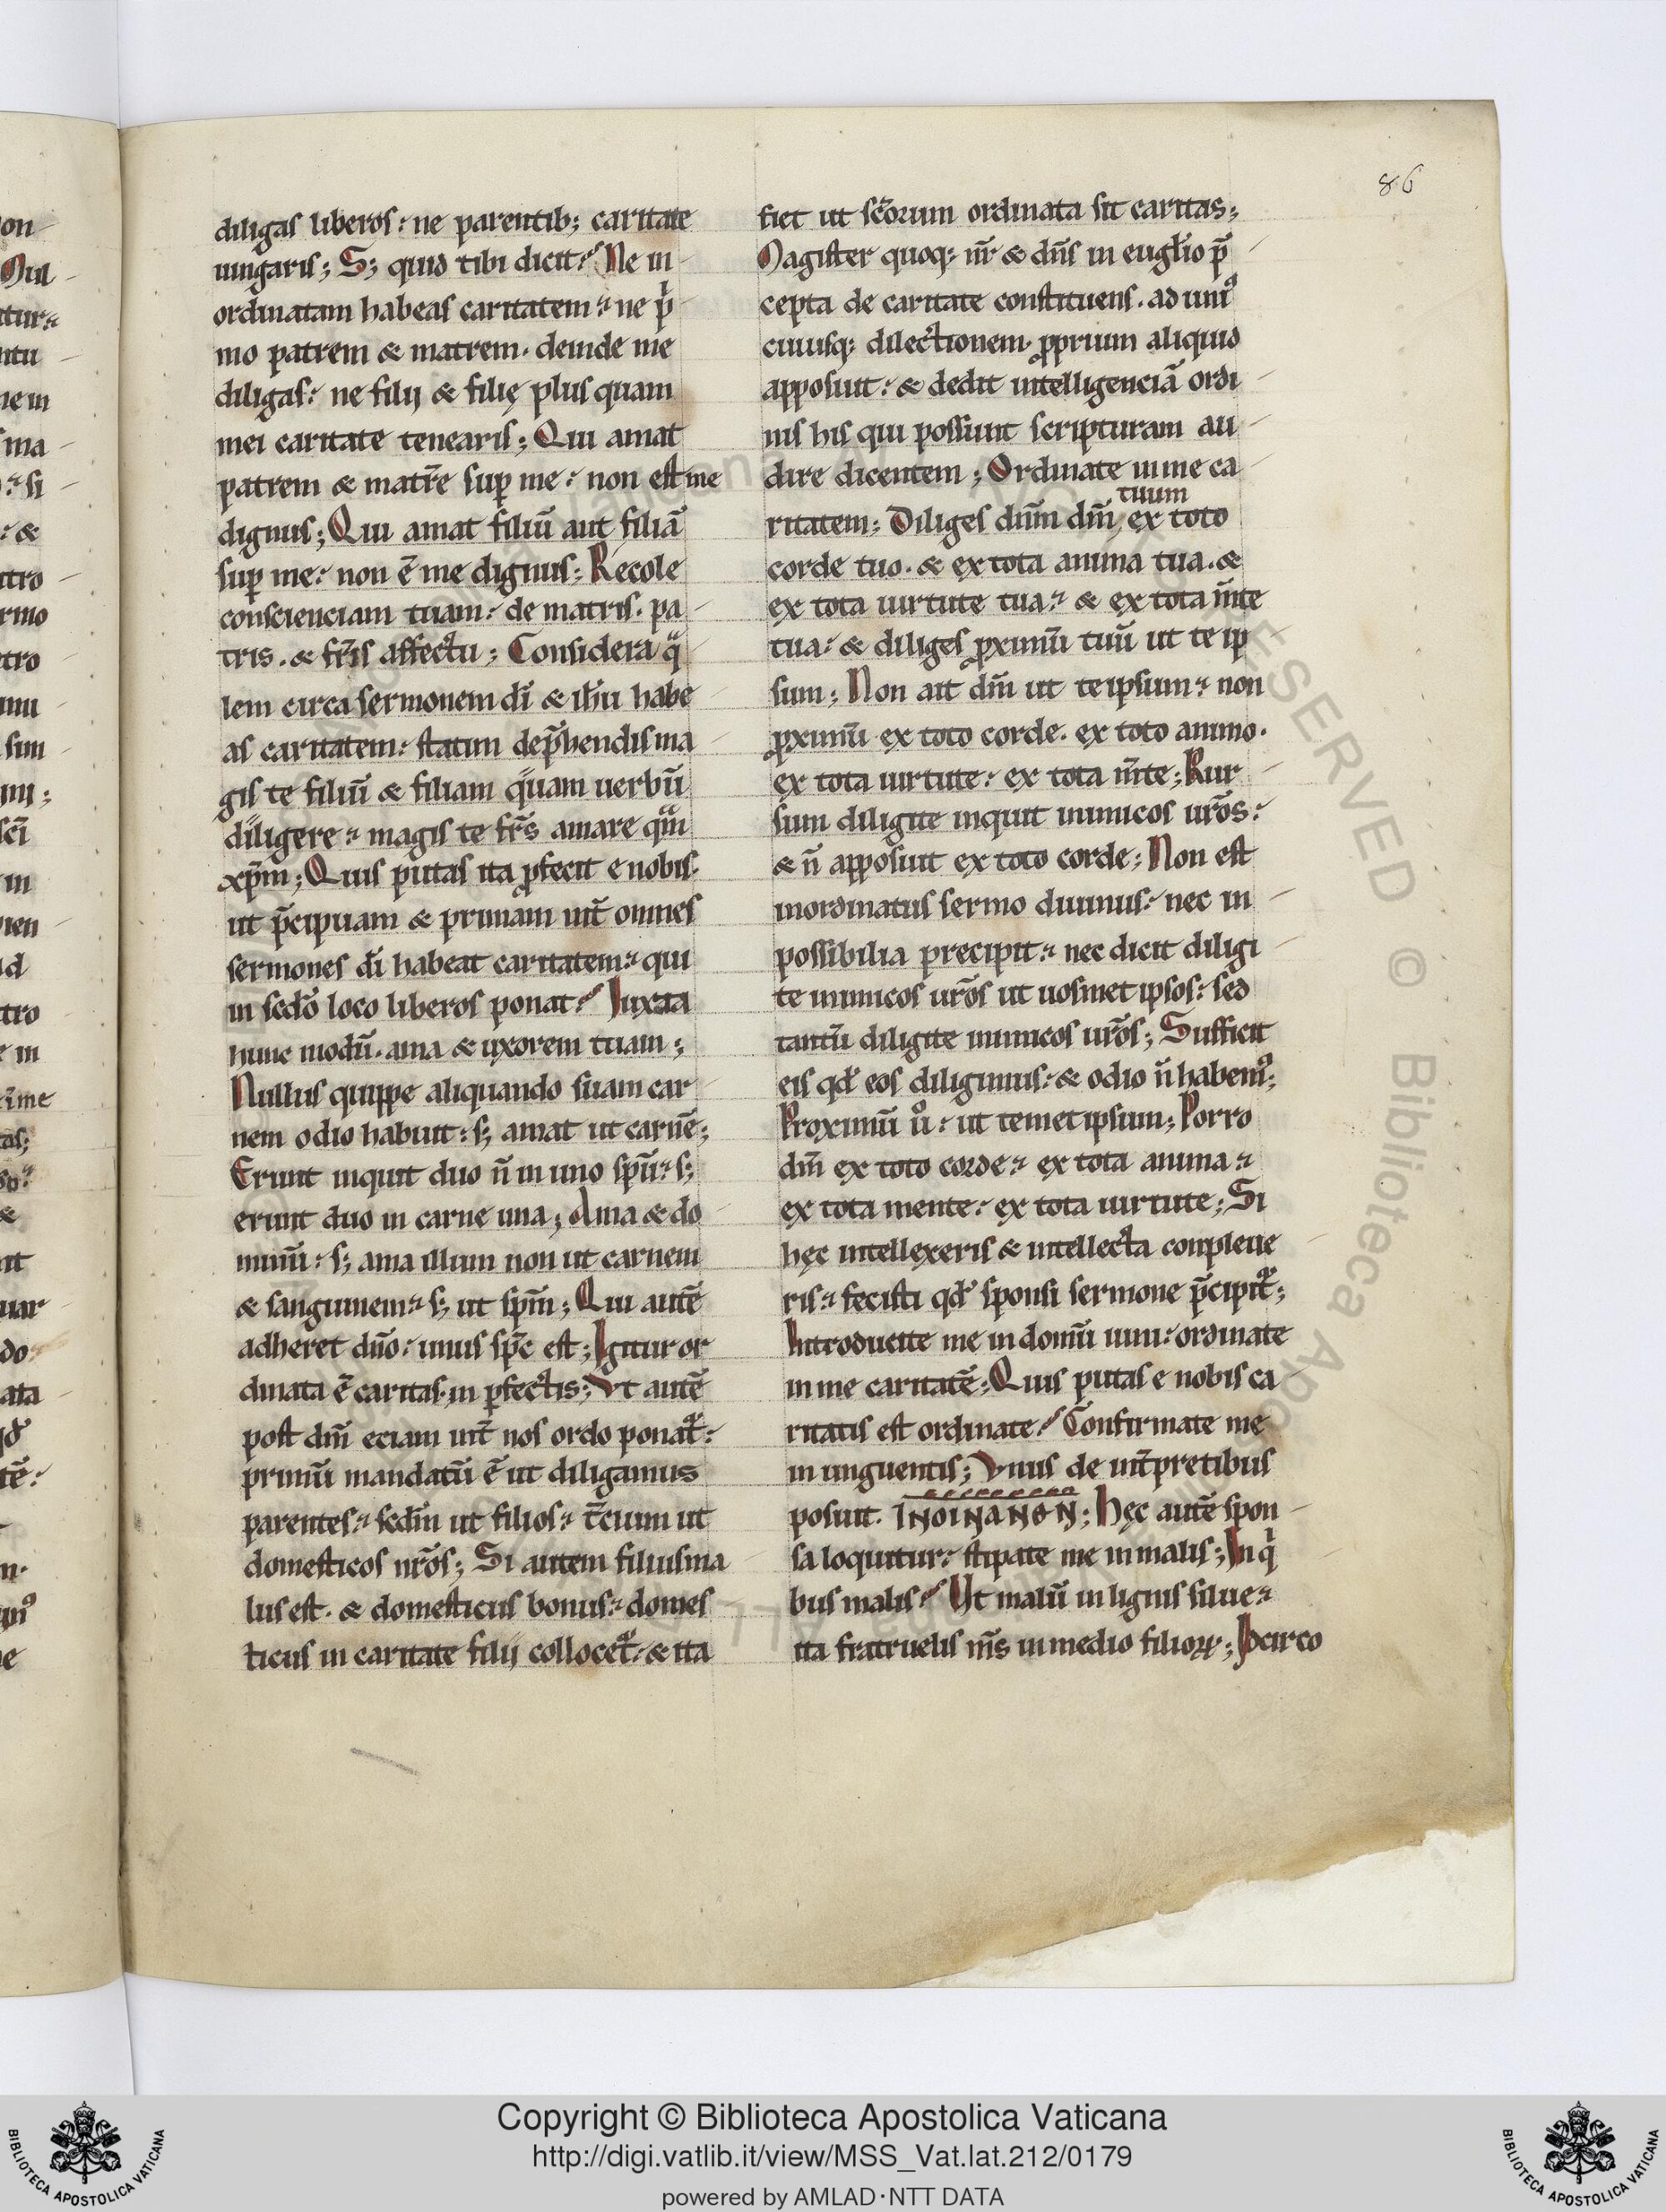 86
diligas liberos: ne parentib; caritate
iungaris; S; quid tibi dicit? Ne in
ordinatam habeas caritatem: ne p̍
mo patrem & matrem. deinde me
diligas: ne filij & filię plus quam
mei caritate tenearis; Qui amat
patrem & matr̄e suꝑ me: non est me
dignus; Qui amat filiū aut filiā
suꝑ me: non ē me dignus; Recole
conscienciam tuam: de matris. pa
tris. & fr̄is affectu; Considera qͣ
lem circa sermonem dī & ih̄u habe
as caritatem: statim dep̄hendis ma
gis te filiū & filiam quam uerbū
diligere: magis te fr̄s amare qͣm
xp̄m; Quis putas ita ꝓfecit e nobis.
ut p̄cipuam & primam int̄ omnes
sermones dī habeat caritatem: qui
in scdō loco liberos ponat? Iuxta
hunc modū. ama & uxorem tuam;
Nullus quippe aliquando suam car
nem odio habuit: s; amat ut carnē;
Erunt inquit duo n̄ in uno sp̄u: s;
erunt duo in carne una; Ama & do
minū: s; ama illum non ut carnem
& sanguinem: s; ut sp̄m; Qui autē
adheret dn̄o: unus sp̄c est; Igitur or
dinata ē caritas. in ꝑfectis; Vt autē
post dm̄ eciam int̄ nos ordo ponat᷑:
primū mandatū ē ut diligamus
parentes: scdm̄ ut filios: t̄cium ut
domesticos nr̄os; Si autem filius ma
lus est. & domesticus bonus: domes
ticus in caritate filij collocet᷑: & ita
fiet ut sc̄orum ordinata sit caritas;
Magister quoq; nr̄ & dn̄s in eugl̄io p̄
cepta de caritate constituens. ad uniꝰ
cuiusq; dilectionem. ꝓprium aliquid
apposuit: & dedit intelligenciā ordi
nis his qui possunt scripturam au
dire dicentem; Ordinate in me ca
ritatem; Diliges dnm̄ dm̄ tuum ex toto
corde tuo. & ex tota anima tua. &
ex tota uirtute tua: & ex tota m̄te
tua: & diliges ꝓximū tuū ut te ip
sum; Non ait dm̄ ut te ipsum: non
ꝓximū ex toto corde. ex toto animo.
ex tota uirtute: ex tota m̄te; Rur
sum diligite inquit inimicos ur̄os:
& n̄ apposuit ex toto corde; Non est
inordinatus sermo diuinus: nec in
possibilia precipit: nec dicit diligi
te inimicos ur̄os ut uosmet ipsos: sed
tantū diligite inimicos ur̄os; Sufficit
eis qd̄ eos diligimus: & odio n̄ habemꝰ;
Proximū uͦ: ut temet ipsum; Porro
dm̄ ex toto corde: ex tota anima:
ex tota mente: ex tota uirtute; Si
hęc intellexeris & intellecta conpleue
ris: fecisti qd̄ sponsi sermone p̄cipit᷑;
Introducite me in domū uini: ordinate
in me caritatē; Quis putas e nobis ca
ritatis est ordinate? Confirmate me
in unguentis; Vnus de int̄pretibus
posuit. INOINANON; Hęc autē spon
sa loquitur: stipate me in malis; In q̍
bus malis? Ut malū in lignis silue:
ita fratruelis m̄s in medio filioꝝ; Idcirco
Copyright © Biblioteca Apostolica Vaticana
http://digi.vatlib.it/view/MSS_Vat.lat.212/0179
powered by AMLAD·NTT DATA
BIBLIOTECA APOSTOLICA VATICANA
BIBLIOTECA APOSTOLICA VATICANA